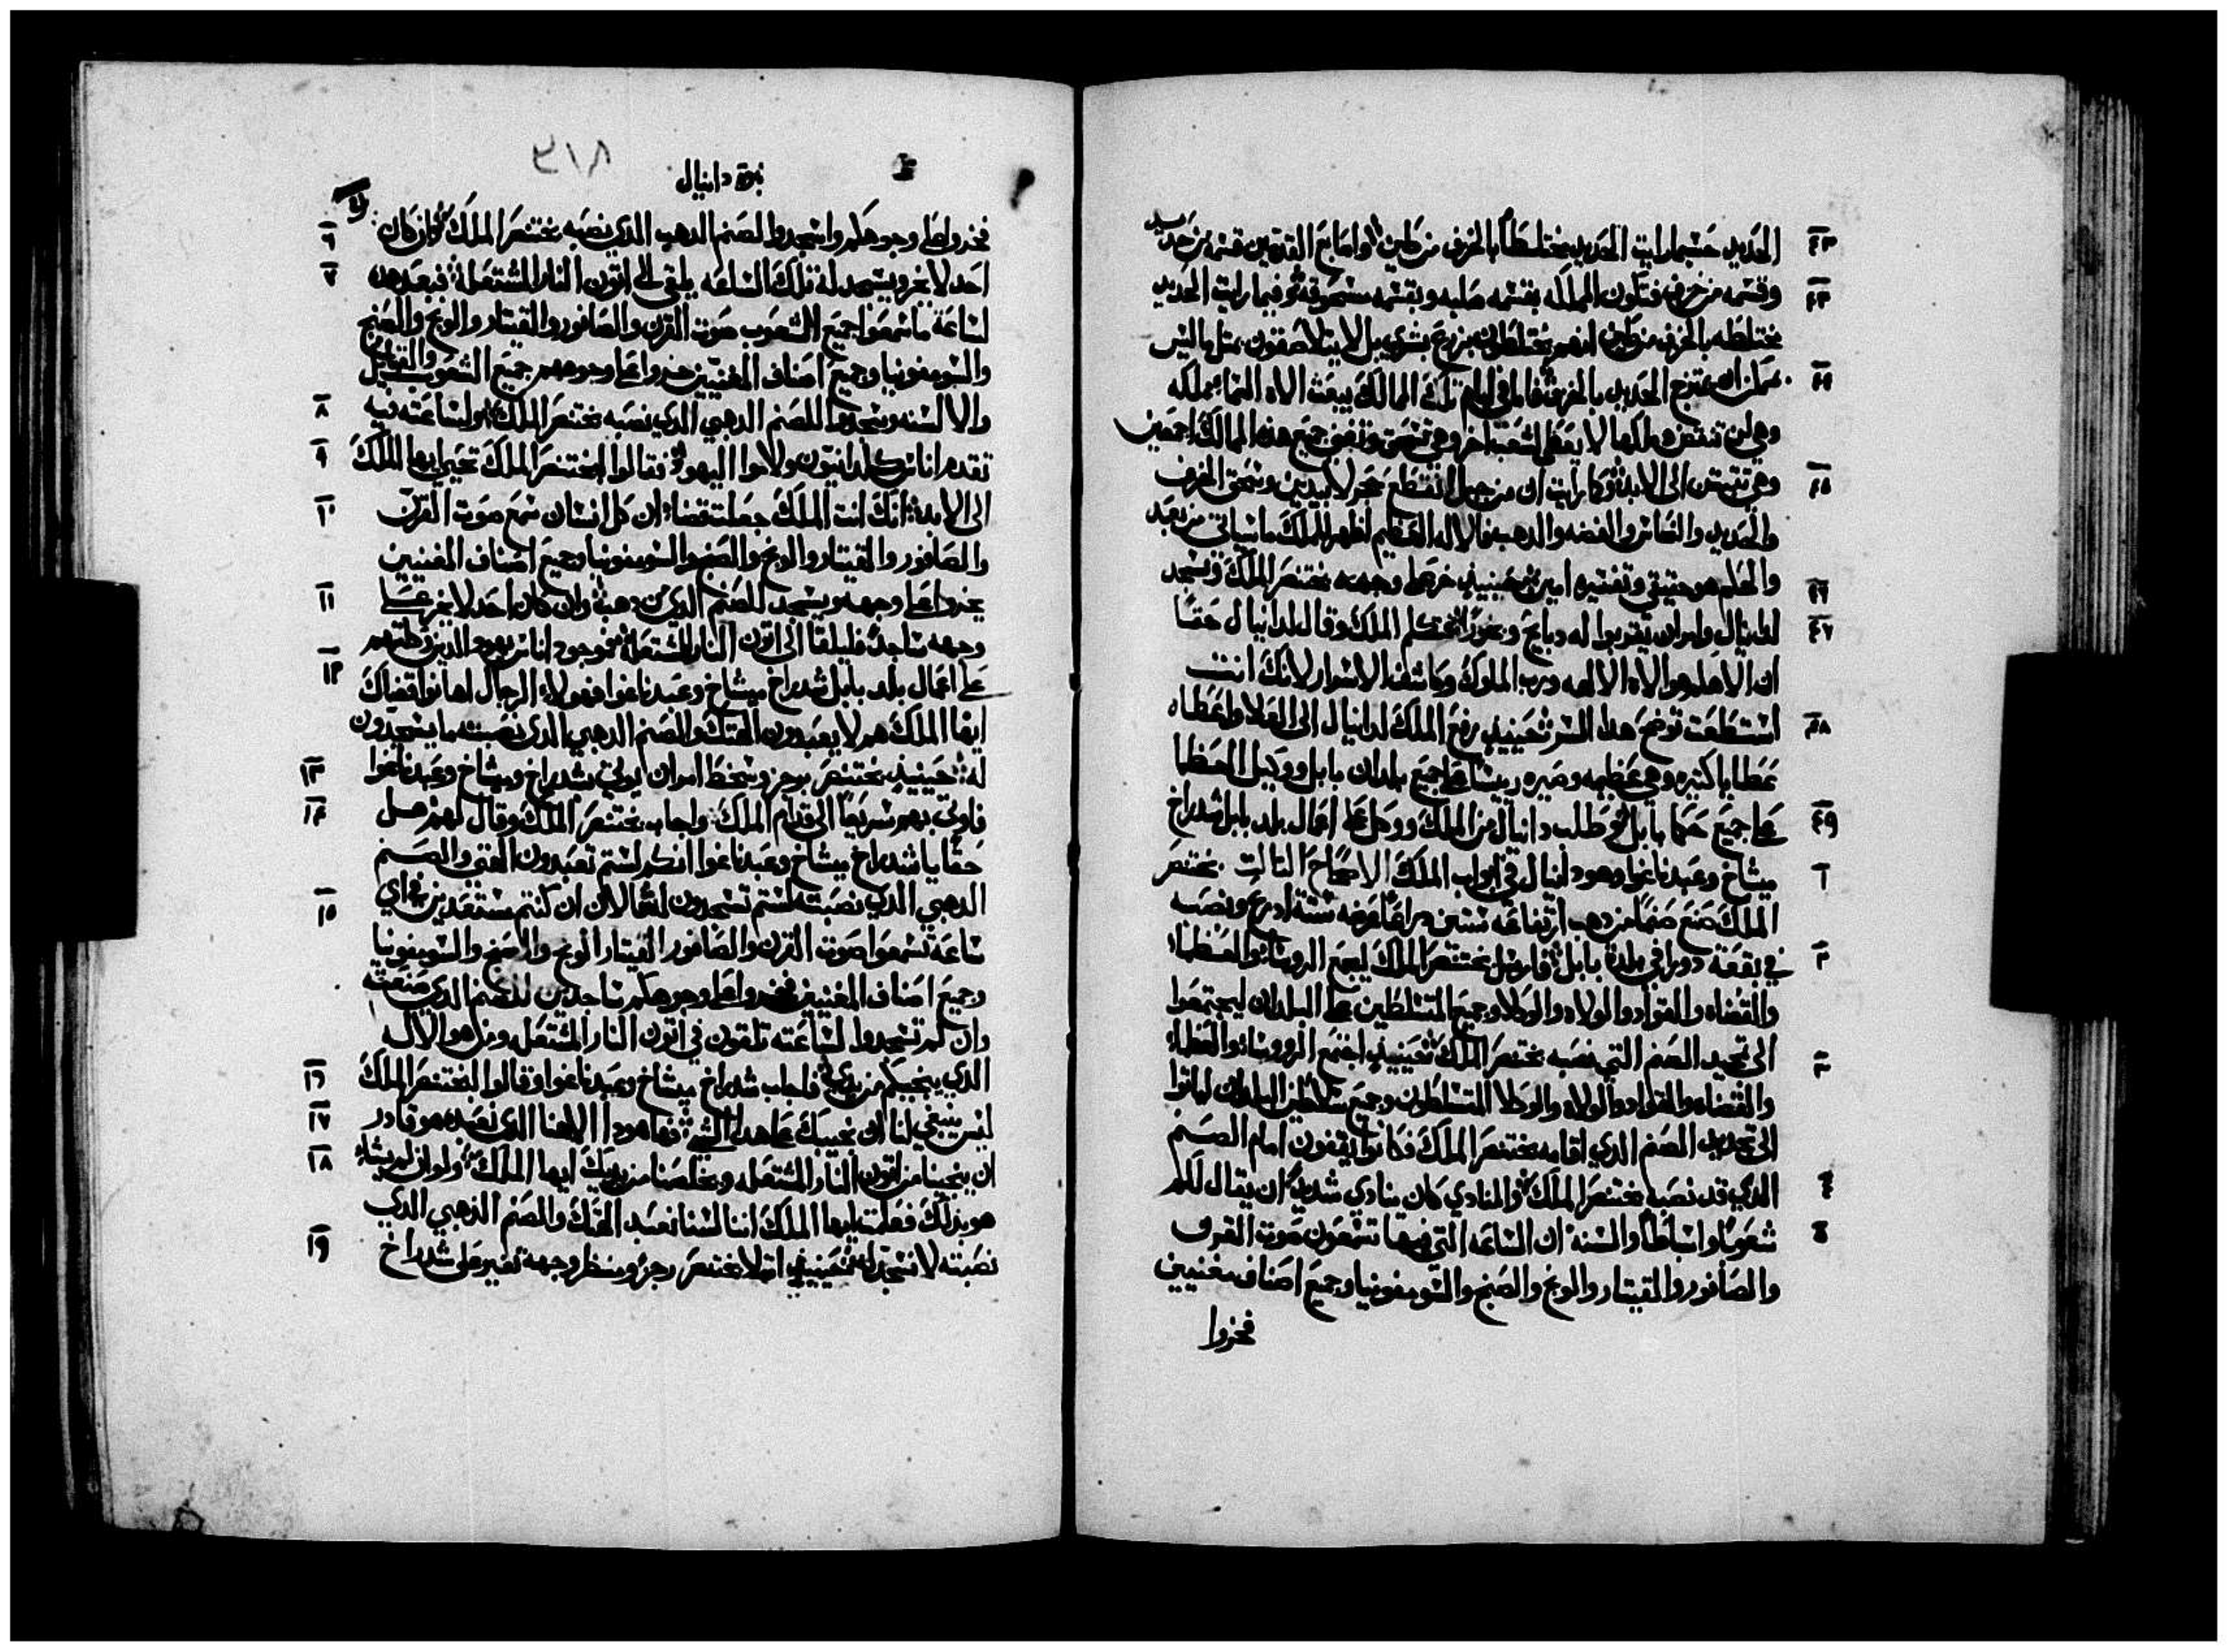 الحديد حسبما رايت الحديد مختلطاً بالخزف من طين واصابع القدمين قسمه من حديد
٤٢
وقسمه من خزف فتكون المملكه بقسمه صلبه وبقسمه مسحوقه وفيما رايت الحديد
٤٣
مختلطه بالخزف من طين انهم يختلطون بزرع بشري بل لا يتلاصقون مثل ما ليس
يمكن ان يمتزج الحديد بالخزف فاما في ايام تلك الممالك يبعث الاه السما مملكه
٤٤
وهي لن تنتقض وملكها لا يعطى لشعب اخر وهي تسحق وتفني جميع هذه الممالك اجمعين
وهي تثبت الى الابد وكما رايت ان من جبل انقطع حجر لا بيدين وسحق الخزف
٤٥
والحديد والنحاس والفضه والدهب فالاله العظيم اظهر للملك ما سياتي من بعد
والحلم هو حقيقي وتفسيره امين حينيذ خر على وجهه بختنصر الملك وسجد
٤٦
لدانيال وامر ان يقربوا له دبايح وبخوراً فتكلم الملك وقال لدانيال حقاً
٤٧
ان الاهكم هو الاه الالهه ورب الملوك وكاشف الاسرار لانك انت
استطعت توضح هدا السر حينيذ رفع الملك لدانيال الى العلا واعطاه
٤٨
عطايا كثيره وهي عظيمه وصيره رييسًا على جميع بلدان بابل ووكيل العظما
على جميع حكما بابل وطلب دانيال من الملك ووكل على اعمال بلد بابل شدراخ
٤٩
ميشاخ وعبدناغوا وهو دانيال في ابواب الملك الاصحاح الثالث بختنصر
١
الملك صنع صنمًا من دهب ارتفاعه ستين دراعًا عرضه ستة ادرع ونصبه
في بقعة دورا في بلدة بابل فارسل بختنصر الملك ليجمع الروسا والعظما
٢
والقضاه والقواد والولاه والوكلا وجميع المتسلطين على البلدان ليجتمعوا
الى تجديد الصنم التي نصبه بختنصر الملك حينيذ اجتمع الروسا والعظما
٣
والقضاه والقواد والولاه والوكلا المتسلطون وجميع سلاطين البلدان لياتوا
الى تجديد الصنم الدي اقامه بختنصر الملك فكانوا يقفون امام الصنم
الدي قد نصبه بختنصر الملك والمنادي كان ينادي شديدًا ان يقال لكم
٤
شعوبًا واسباطًا والسنة ان الساعه التي فيها تسمعون صوت القرن
٥
والصافور والقيتار والونج والصنج والسومفونيا وجميع اصناف مغنيين
فخروا
٣١٨
نبوة دانيال
فخروا على وجوهكم واسجدوا للصنم الدهب الدي نصبه بختنصر الملك وان كان
٦
احد لا يخر ويسجد له تلك الساعه يلقى الى اتون النار المشتعلة فبعد هدن
٧
لساعة ما سمعوا جميع الشعوب صوت القرن والصافور والقيتار والونج والصنج
والسومفونيا وجميع اصناف المغنيين خروا على وجوههم جميع الشعوب والقبايل
والالسنه وسجدوا للصنم الدهبي الدي نصبه بختنصر الملك ولساعته فيه
٨
تقدم اناس كلدانيون ولاموا اليهود فقالوا لبختنصر الملك تحيى ايها الملك
٩
الى الابد انك انت الملك جعلت قضاء ان كل انسان سمع صوت القرن
١٠
والصافور والقيتار والونج والصنج والسومفونيا وجميع اصناف المغنيين
يخر على وجهه ويسجد للصنم الدي من دهب وان كان احد لا يخر على
١١
وجهه ساجدًا فليلقا الى اتون النار المشتعلة فموجود اناس يهود الدين وكلتهم
١٢
على اعمال بلد بابل شدراخ ميشاخ وعبدناغوا فهولاء الرجال اهانوا قضاك
ايها الملك هم لا يعبدون الهتك والصنم الدهبي الدي نصبته ما يسجدون
له حينيذ بختنصر برجز وسخط امر ان يوتى بشدراخ وميشاخ وعبدناغوا
١٣
فاوتي بهم سريعًا الى قدام الملك واجاب بختنصر الملك وقال لهم هل
١٤
حقًا يا شدراخ ميشاخ وعبدناغوا انكم لستم تعبدون الهتي والصنم
الدهبي الدي نصبته لستم تسجدون له فالان ان كنتم مستعدين في اي
١٥
ساعة تسمعوا صوت القرن والصافور القيتار الونج والصنج والسومفونيا
وجميع اصناف المغنيين فخروا على وجوهكم ساجدين للصنم الدي صنعته
وان لم تسجدوا لساعته تلقون في اتون النار المشتعله ومن هو الاله
الدي ينجيكم من يدي فاجاب شدراخ ميشاخ وعبدناغوا وقالوا لبختنصر الملك
١٦
ليس ينبغي لنا ان نجيبك على هدا الشي فها هودا الاهنا الدي نعبده هو قادر
١٧
ان ينجينا من اتون النار المشتعله ويخلصنا من يديك ايها الملك ولو ان لم يشاء
١٨
هو بدلك فعلت ايها الملك اننا لسنا نعبد الهتك والصنم الدهبي الدي
نصبته لا نسجد له حينيذ امتلا بختنصر رجز ومنظر وجهه تغير على شدراخ
١٩